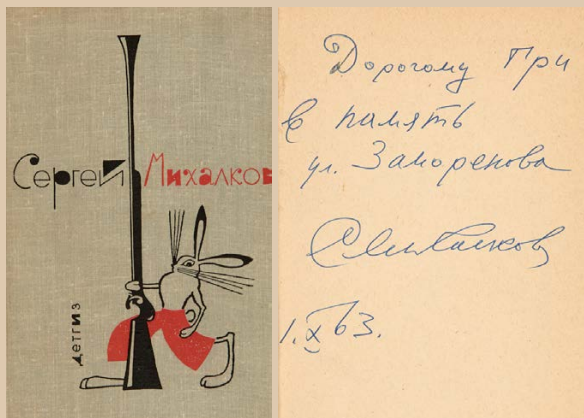 Сергей Михалков
детгиз
Дорогому Гри
в память
ул. Заморенова
СМихалков
1.X 63.